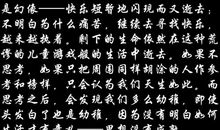 是幻像——快乐短暂地闪现而又逝去；
不明白为什么痛苦，继续去寻找快乐，
越来越热着。剩下的生命依然在这种荒
谬的儿童游戏般的生活中逝去。如果不
思考，如果把周围同样糊涂的人作为参
考和榜样，只会认为我们天生如此，而
思考之后，会发现我们多么幼稚，即使
头发白了也是幼稚，因为想不明白